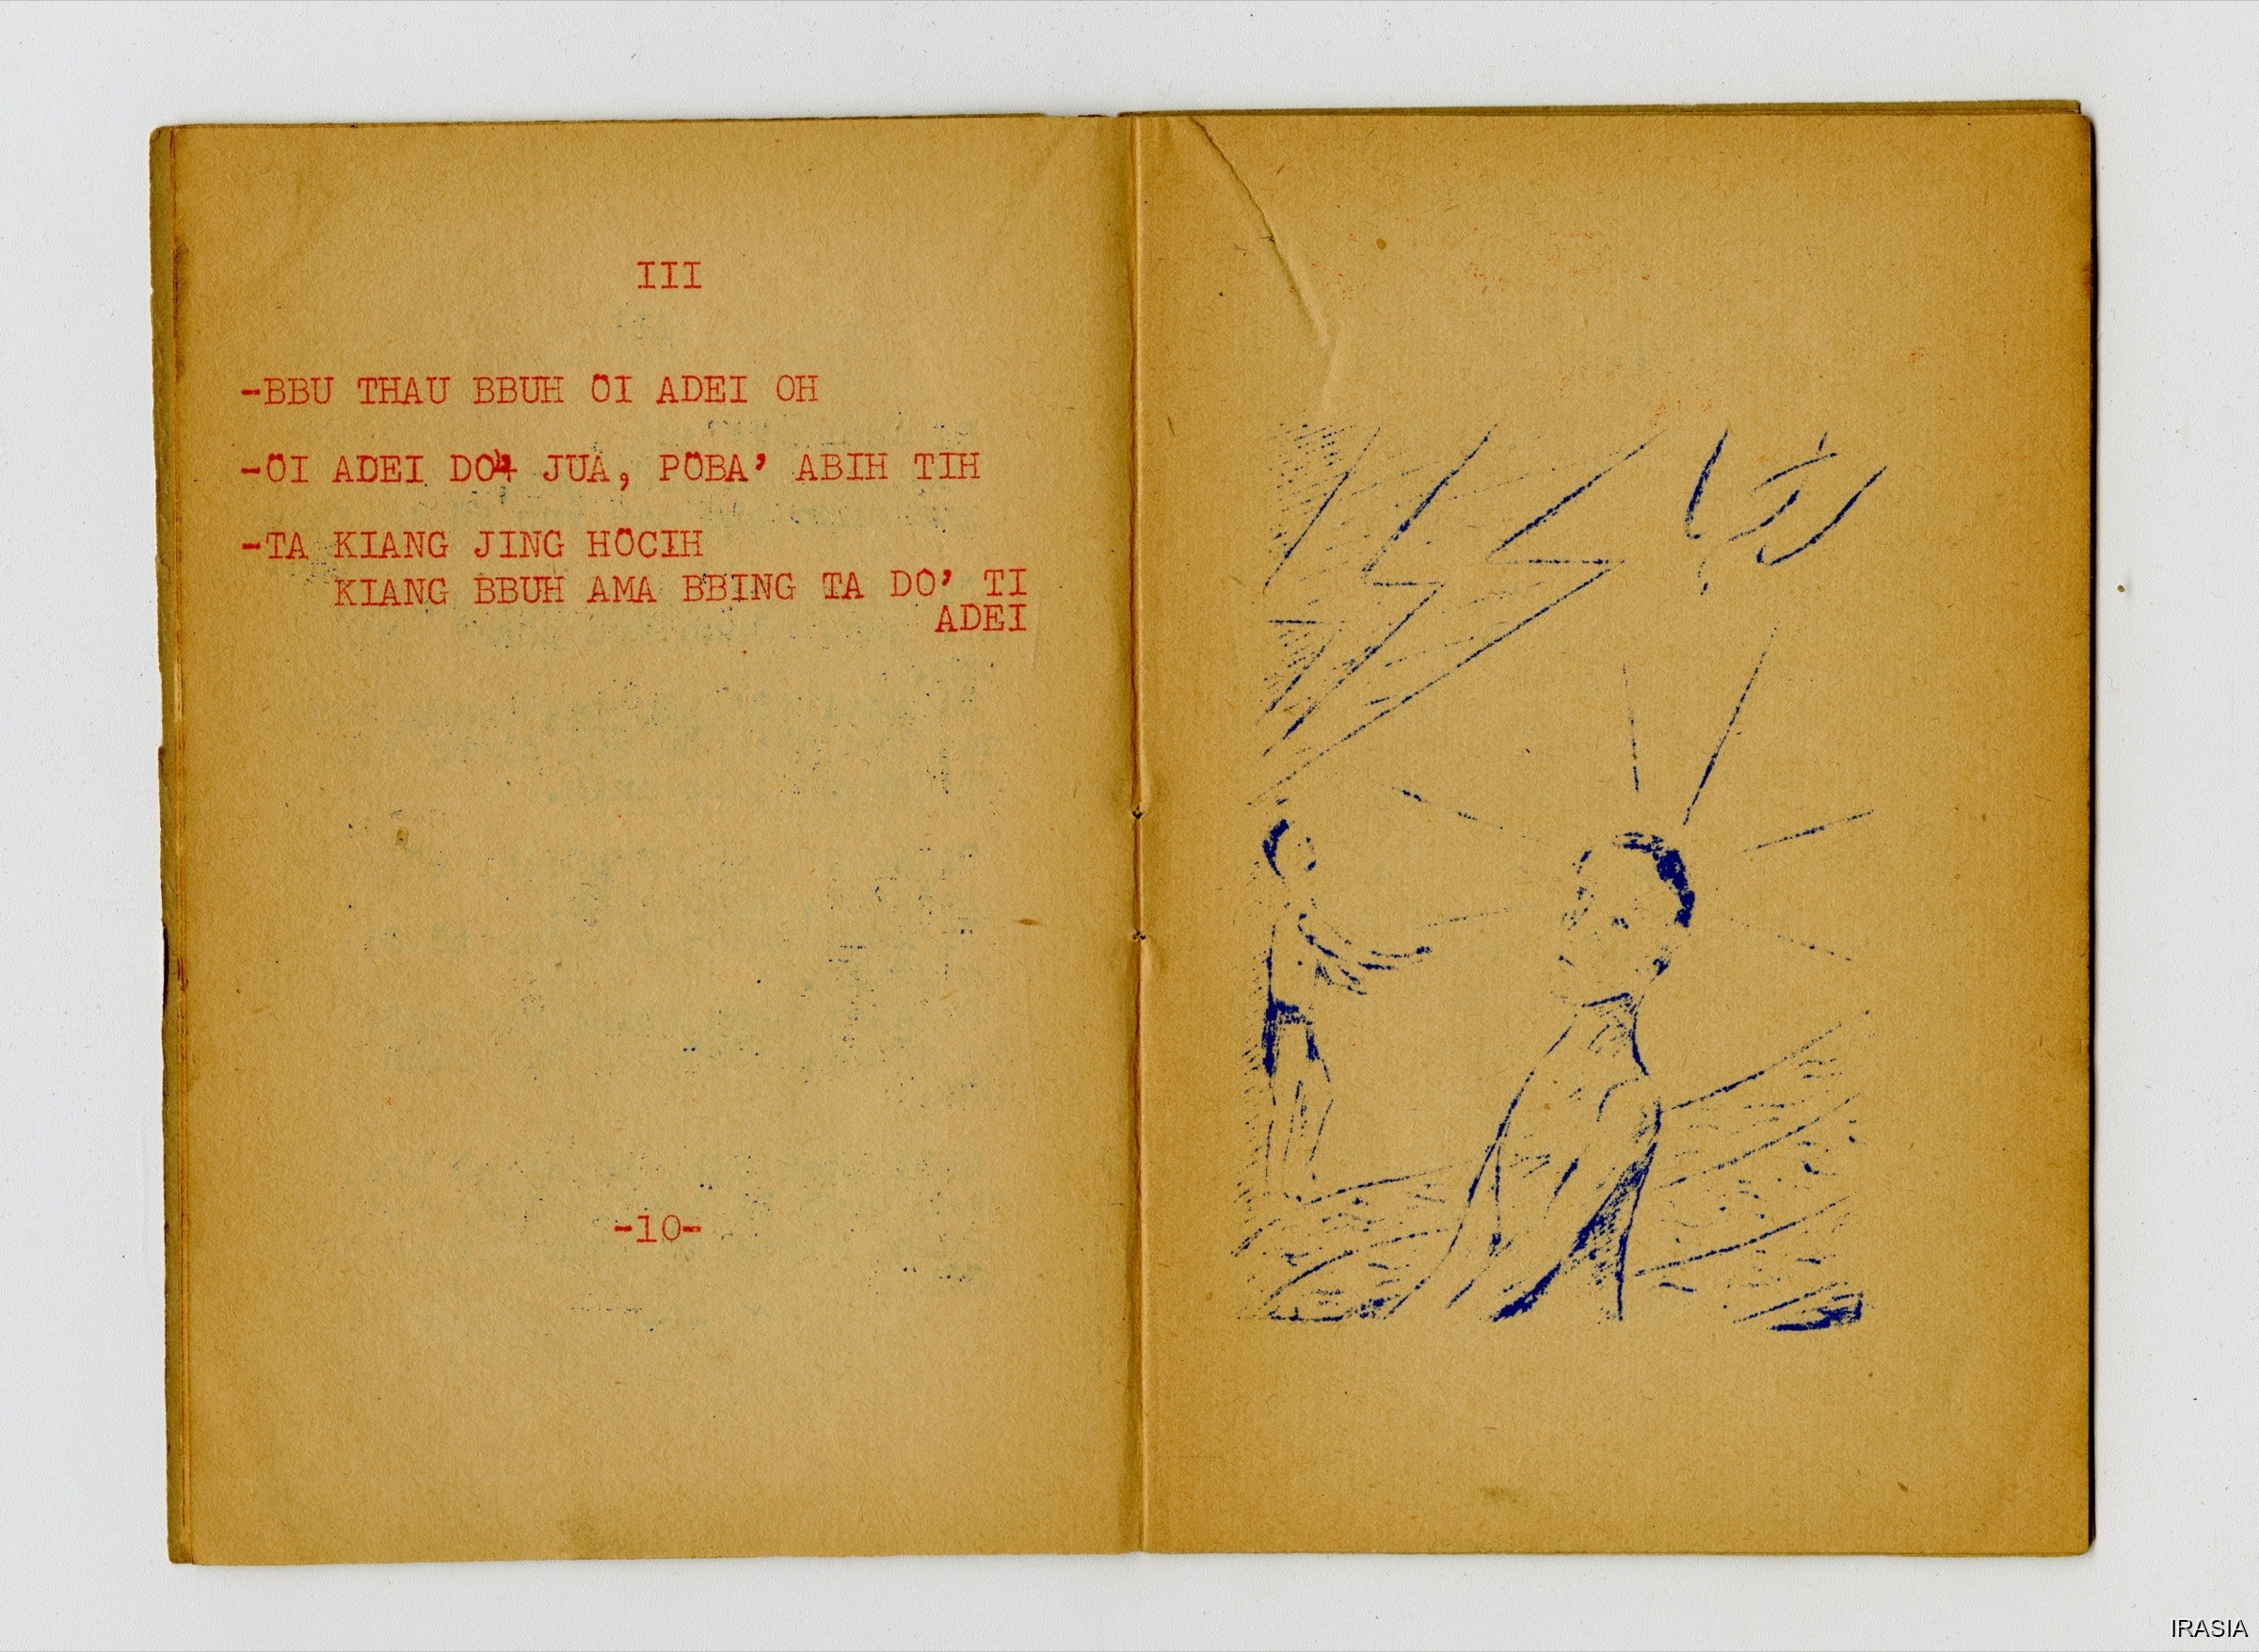 III
-BBU THAU BBUH ÖI ADEI OH
-ÖI ADEI DO' JUA, PÖBA' ABIH TIH
-TA KIANG JING HÖCIH
KIANG BBUH AMA BBING TA DO' TI
ADEI
-10-
IRASIA